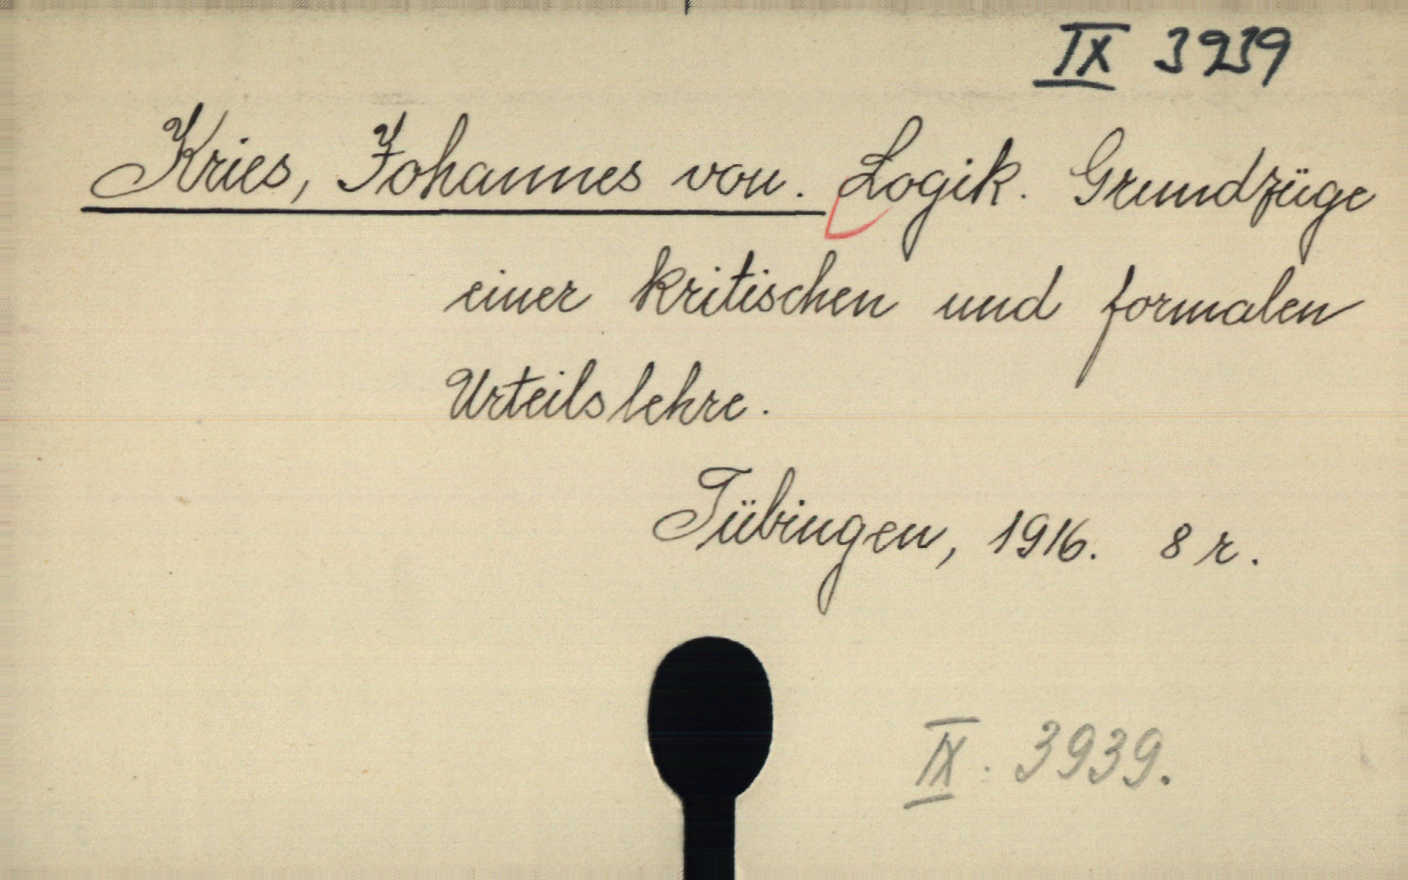 IX 3939
Kries, Johannes von. Logik. Grundzüge
einer kritischen und formalen
Urteilslehre.
Tübingen, 1916. 8 r.
IX. 3939.